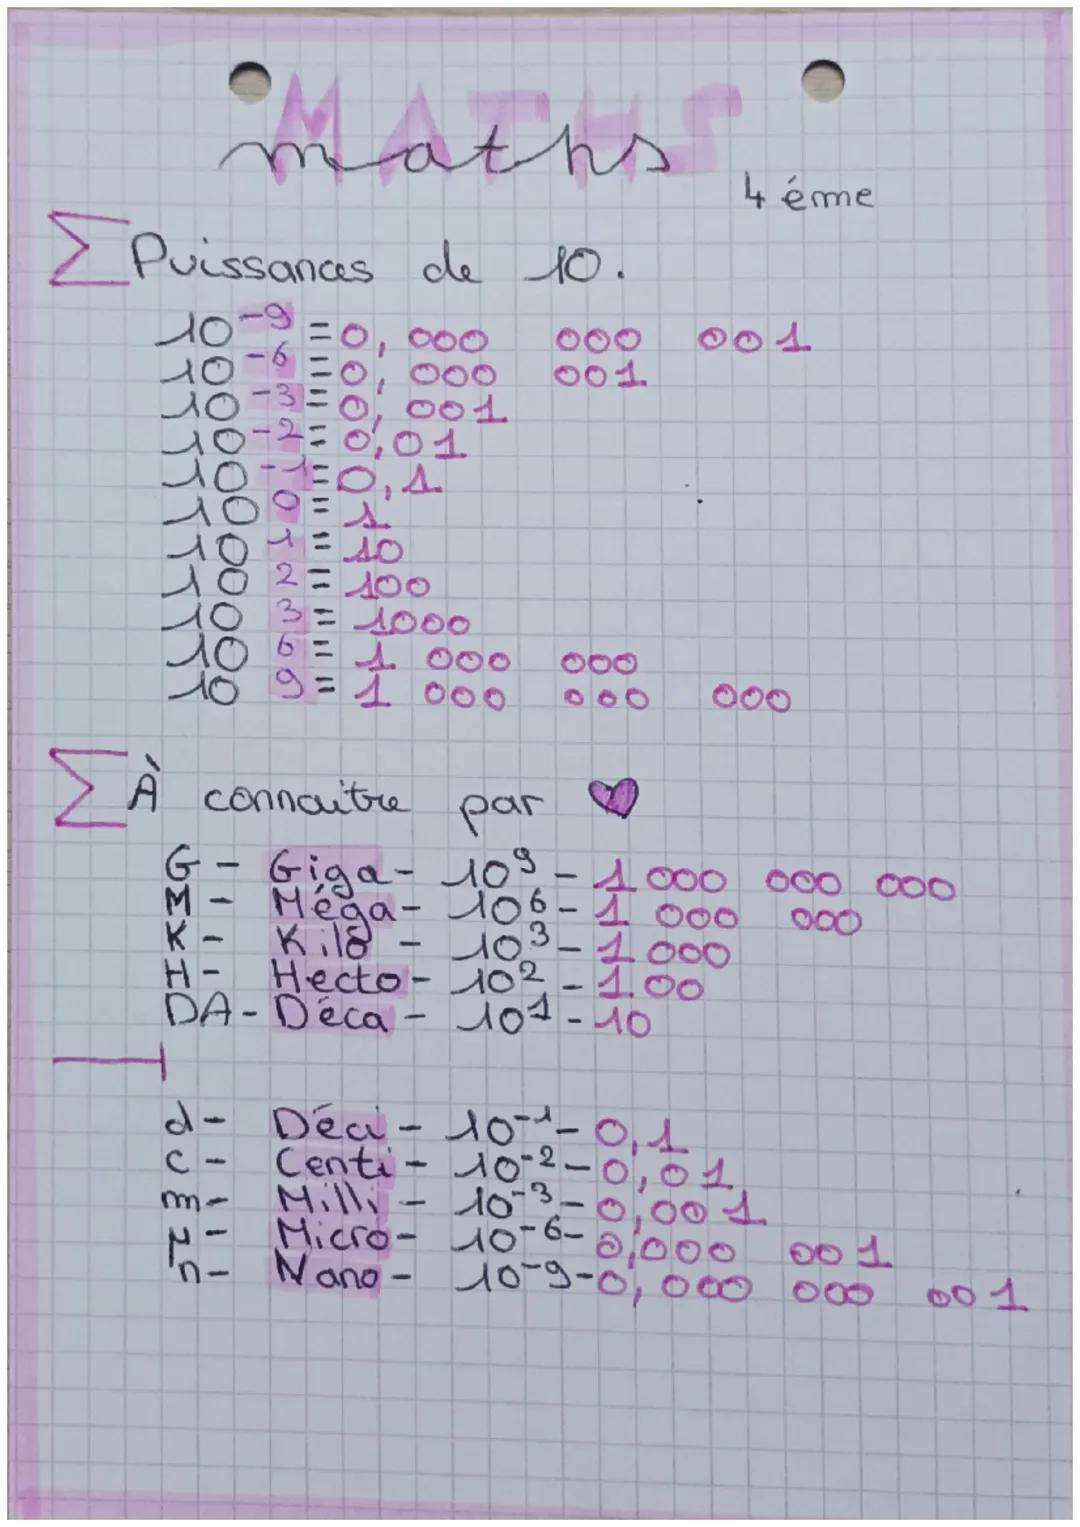 MATHS
maths
4 éme
Puissances de 10.
10⁻⁹ = 0, 000 000 001
10⁻⁶ = 0, 000 001
10⁻³ = 0, 001
10⁻² = 0,01
10⁻¹ = 0,1
10⁰ = 1
10¹ = 10
10² = 100
10³ = 1000
10⁶ = 1 000 000
10⁹ = 1 000 000 000
À connaitre par ♥
G - Giga - 10⁹ - 1 000 000 000
M - Méga - 10⁶ - 1 000 000
K - Kilo - 10³ - 1 000
H - Hecto - 10² - 100
DA - Déca - 10¹ - 10
d - Déci - 10⁻¹ - 0,1
c - Centi - 10⁻² - 0,01
m - Milli - 10⁻³ - 0,001
μ - Micro - 10⁻⁶ - 0,000 001
n - Nano - 10⁻⁹ - 0, 000 000 001